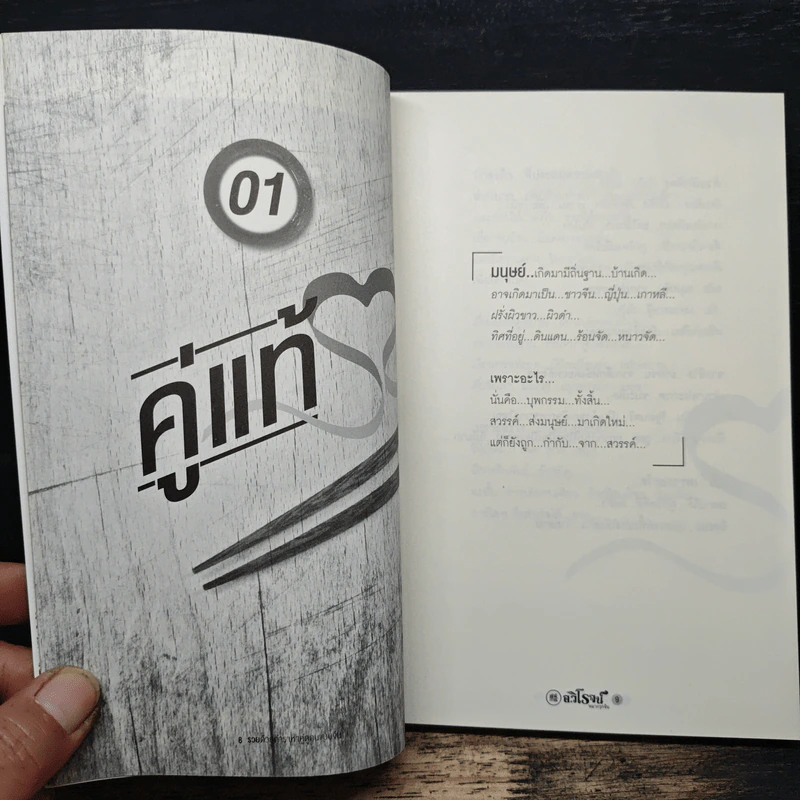 01
คู่แท้
มนุษย์..เกิดมามีถิ่นฐาน...บ้านเกิด...
อาจเกิดมาเป็น...ชาวจีน...ญี่ปุ่น...เกาหลี...
ฝรั่งผิวขาว...ผิวดำ...
ทิศที่อยู่...ดินแดน...ร้อนจัด...หนาวจัด...
เพราะอะไร...
นั่นคือ...บุพกรรม...ทั้งสิ้น...
สวรรค์...ส่งมนุษย์...มาเกิดใหม่...
แต่ก็ยังถูก...กำกับ...จาก...สวรรค์...
อวิโรจน์ 9
8